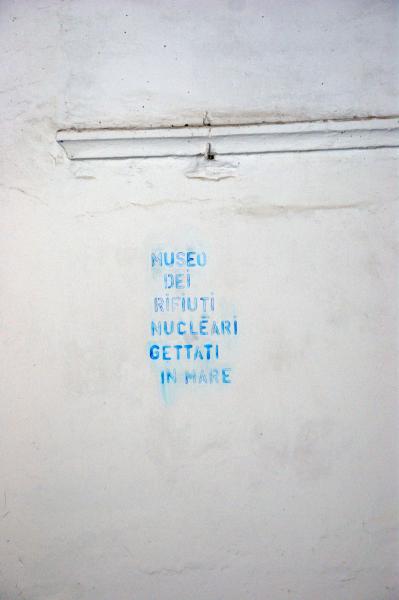 MUSEO
DEI
RIFIUTI
NUCLEARI
GETTATI
IN MARE